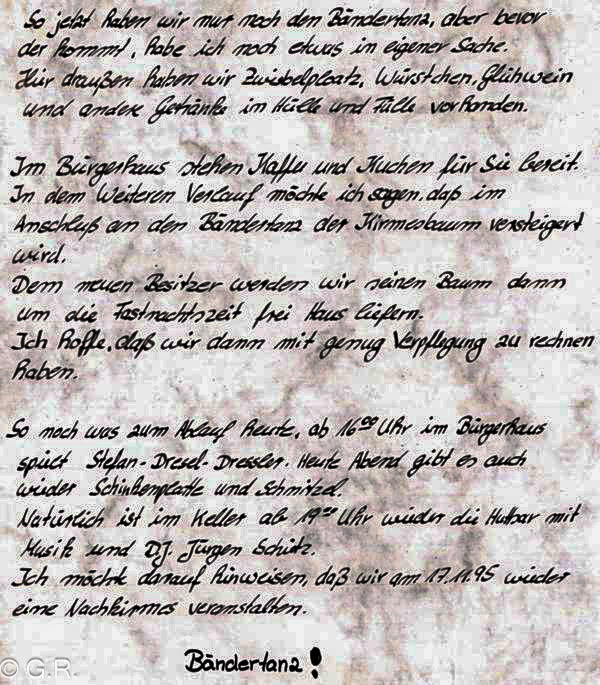 So jetzt haben wir nur noch den Bändertanz, aber bevor
der kommt, habe ich noch etwas in eigener Sache.
Hier draußen haben wir Zwiebelplootz, Würstchen, Glühwein
und andere Getränke in Hülle und Fülle vorhanden.
Im Bürgerhaus stehen Kaffee und Kuchen für Sie bereit.
In dem Weiteren Verlauf möchte ich sagen, daß im
Anschluß an den Bändertanz der Kirmesbaum versteigert
wird.
Dem neuen Besitzer werden wir seinen Baum dann
um die Fastnachtszeit frei Haus liefern.
Ich hoffe, daß wir dann mit genug Verpflegung zu rechnen
haben.
So noch was zum Ablauf heute, ab 16⁰⁰ Uhr im Bürgerhaus
spielt Stefan-Dresel-Dressler. Heute Abend gibt es auch
wieder Schinkenplatte und Schnitzel.
Natürlich ist im Keller ab 19⁰⁰ Uhr wieder die Hutbar mit
Musik und D.J. Jürgen Schütz.
Ich möchte darauf hinweisen, daß wir am 17.11.95 wieder
eine Nachkirmes veranstalten.
Bändertanz!
© G.R.